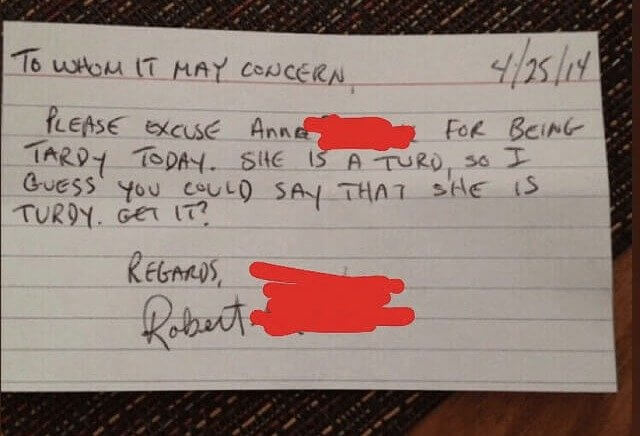 TO WHOM IT MAY CONCERN, 4/25/14
PLEASE EXCUSE Anna FOR BEING
TARDY TODAY. SHE IS A TURD, SO I
GUESS YOU COULD SAY THAT SHE IS
TURDY. GET IT?
REGARDS,
Robert